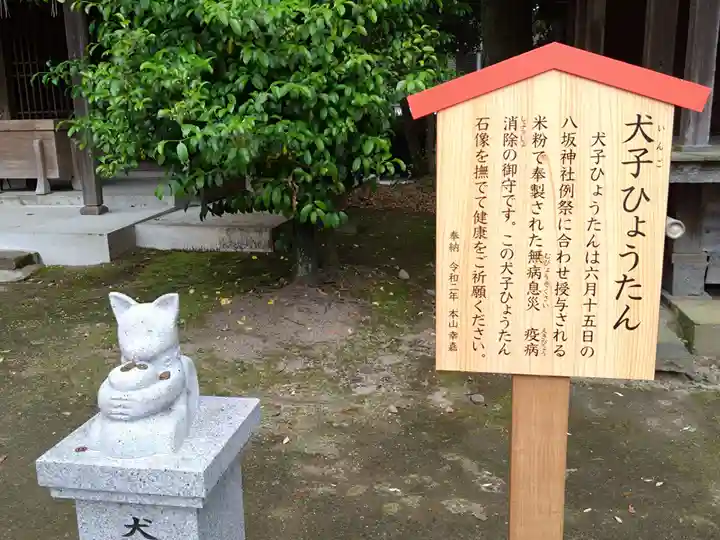 犬子ひょうたん
いんご
犬子ひょうたんは六月十五日の
八坂神社例祭に合わせ授与される
米粉で奉製された無病息災 疫病
むびょうそくさい
えきびょう
消除の御守です。この犬子ひょうたん
しょうじょ
石像を撫でて健康をご祈願ください。
奉納 令和二年 本山幸嘉
犬